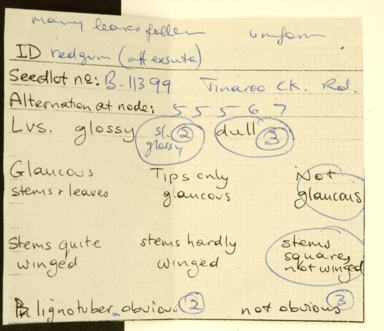 Many leaves fallen uniform
ID redgum (aff exserta)
Seedlot no: B-11399 Tinaroo Ck. Rd.
Alternation at node: 5 5 5 6 7
Lvs. glossy sl. glossy 2 dull 3
Glaucous Tips only Not
stems + leaves glaucous glaucous
Stems quite stems hardly stems
winged winged square,
not winged
lignotuber obvious 2 not obvious 3